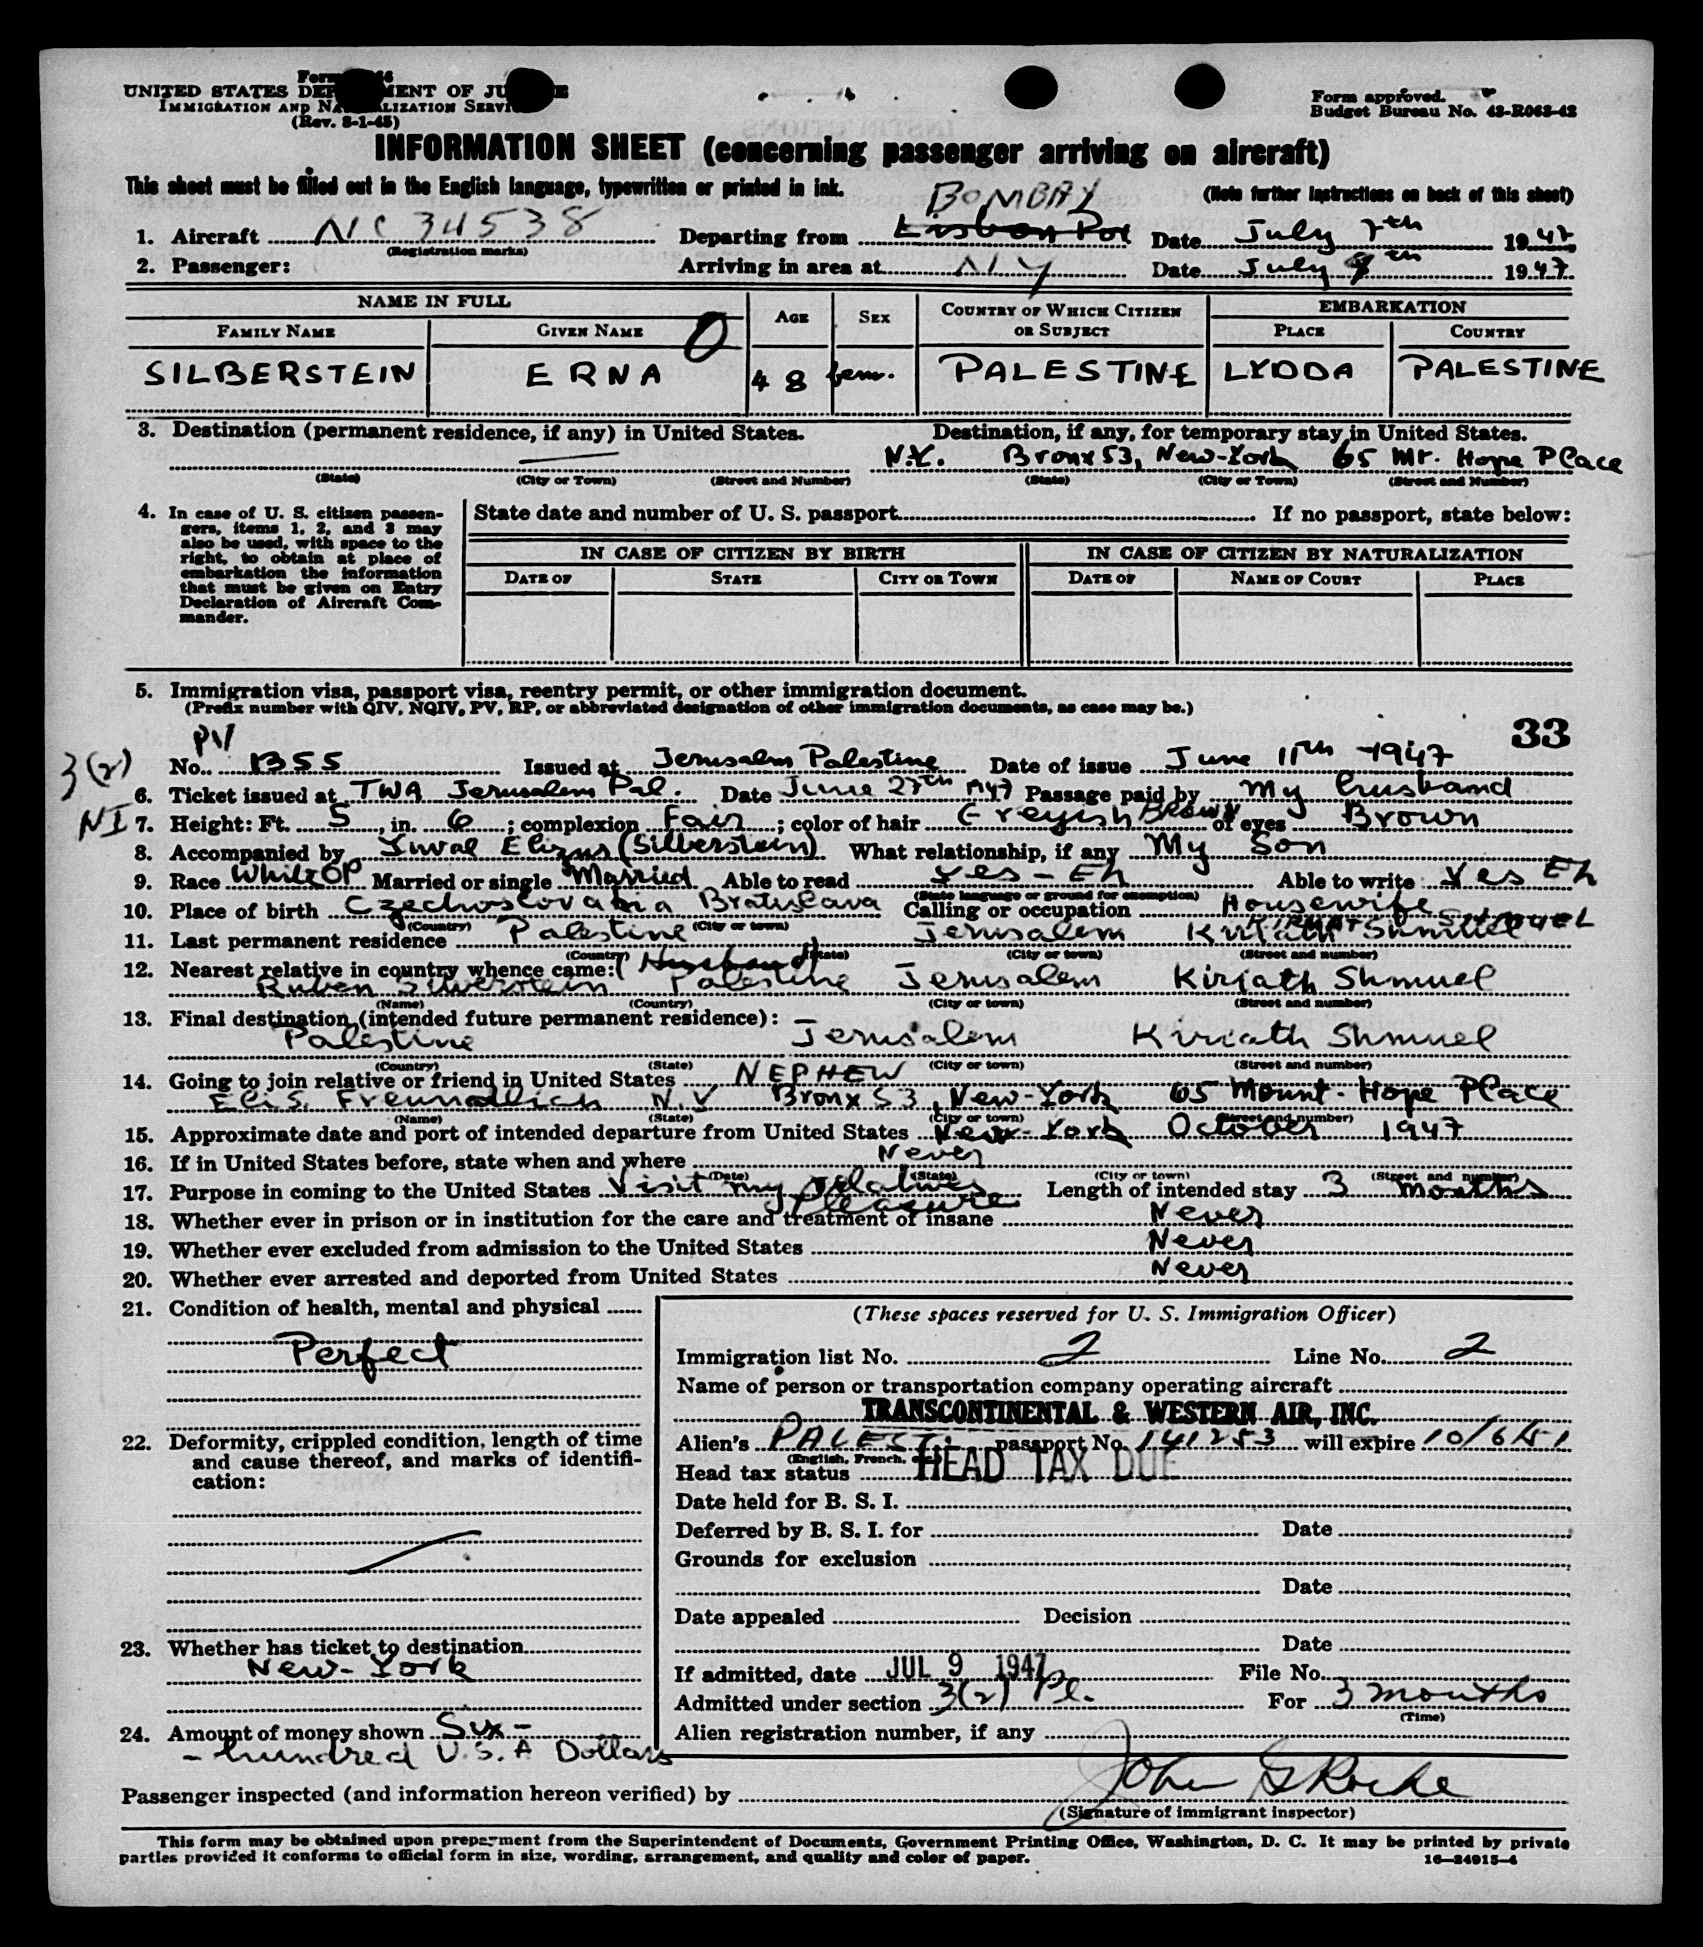 UNITED STATES DEPARTMENT OF JUSTICE
IMMIGRATION AND NATURALIZATION SERVICE
(Rev. 8-1-45)
Form approved.
Budget Bureau No. 43-R063-42
INFORMATION SHEET (concerning passenger arriving on aircraft)
This sheet must be filled out in the English language, typewritten or printed in ink.
(Note further instructions on back of this sheet)
BOMBAY
1. Aircraft NC 34538 Departing from Lisbon Por Date July 7th 1947
(Registration marks)
2. Passenger: Arriving in area at NY Date July 9th 1947
NAME IN FULL AGE SEX COUNTRY OF WHICH CITIZEN OR SUBJECT EMBARKATION
FAMILY NAME GIVEN NAME PLACE COUNTRY
SILBERSTEIN ERNA 0 48 fem. PALESTINE LYDDA PALESTINE
3. Destination (permanent residence, if any) in United States. Destination, if any, for temporary stay in United States.
N.Y. Bronx 53, New-York 65 Mt. Hope Place
(State) (City or Town) (Street and Number) (State) (City or Town) (Street and Number)
4. In case of U. S. citizen passengers, items 1, 2, and 3 may also be used, with space to the right, to obtain at place of embarkation the information that must be given on Entry Declaration of Aircraft Commander.
State date and number of U. S. passport If no passport, state below:
IN CASE OF CITIZEN BY BIRTH IN CASE OF CITIZEN BY NATURALIZATION
DATE OF STATE CITY OR TOWN DATE OF NAME OF COURT PLACE
5. Immigration visa, passport visa, reentry permit, or other immigration document.
(Prefix number with QIV, NQIV, PV, RP, or abbreviated designation of other immigration documents, as case may be.)
33
PV
3(2)
No. 1355 Issued at Jerusalem Palestine Date of issue June 11th 1947
6. Ticket issued at TWA Jerusalem Pal. Date June 27th 1947 Passage paid by My husband
NI
7. Height: Ft. 5, in. 6; complexion Fair; color of hair Greyish Brown of eyes Brown
8. Accompanied by Yuval Elizur (Silberstein) What relationship, if any My Son
9. Race White Married or single Married Able to read Yes - Eh Able to write Yes Eh
(State language or ground for exemption)
10. Place of birth Czechoslovakia Bratislava Calling or occupation Housewife
(Country) (City or town)
11. Last permanent residence Palestine Jerusalem Kiriath Shmuel
(Country) (State) (City or town) (Street and number)
12. Nearest relative in country whence came: (Husband)
Ruben Silberstein Palestine Jerusalem Kiriath Shmuel
(Name) (Country) (City or town) (Street and number)
13. Final destination (intended future permanent residence):
Palestine Jerusalem Kiriath Shmuel
(Country) (State) (City or town) (Street and number)
14. Going to join relative or friend in United States NEPHEW
Eli S. Freundlich N.Y Bronx 53, New-York 65 Mount-Hope Place
(Name) (State) (City or town) (Street and number)
15. Approximate date and port of intended departure from United States New-York October 1947
16. If in United States before, state when and where Never
(Date) (State) (City or town) (Street and number)
17. Purpose in coming to the United States Visit my relatives Length of intended stay 3 months
Pleasure
18. Whether ever in prison or in institution for the care and treatment of insane Never
19. Whether ever excluded from admission to the United States Never
20. Whether ever arrested and deported from United States Never
21. Condition of health, mental and physical
Perfect
22. Deformity, crippled condition, length of time and cause thereof, and marks of identification:
23. Whether has ticket to destination
New-York
24. Amount of money shown Six-
-hundred U.S.A Dollars
(These spaces reserved for U. S. Immigration Officer)
Immigration list No. 2 Line No. 2
Name of person or transportation company operating aircraft
TRANSCONTINENTAL & WESTERN AIR, INC.
Alien's PALEST. passport No. 141253 will expire 10/6/51
(English, French,
Head tax status HEAD TAX DUE
Date held for B. S. I.
Deferred by B. S. I. for Date
Grounds for exclusion
Date
Date appealed Decision
Date
If admitted, date JUL 9 1947 File No.
Admitted under section 3(2) Pl. For 3 months
(Time)
Alien registration number, if any
Passenger inspected (and information hereon verified) by John G Roche
(Signature of immigrant inspector)
This form may be obtained upon prepayment from the Superintendent of Documents, Government Printing Office, Washington, D. C. It may be printed by private
parties provided it conforms to official form in size, wording, arrangement, and quality and color of paper.
16-24915-4